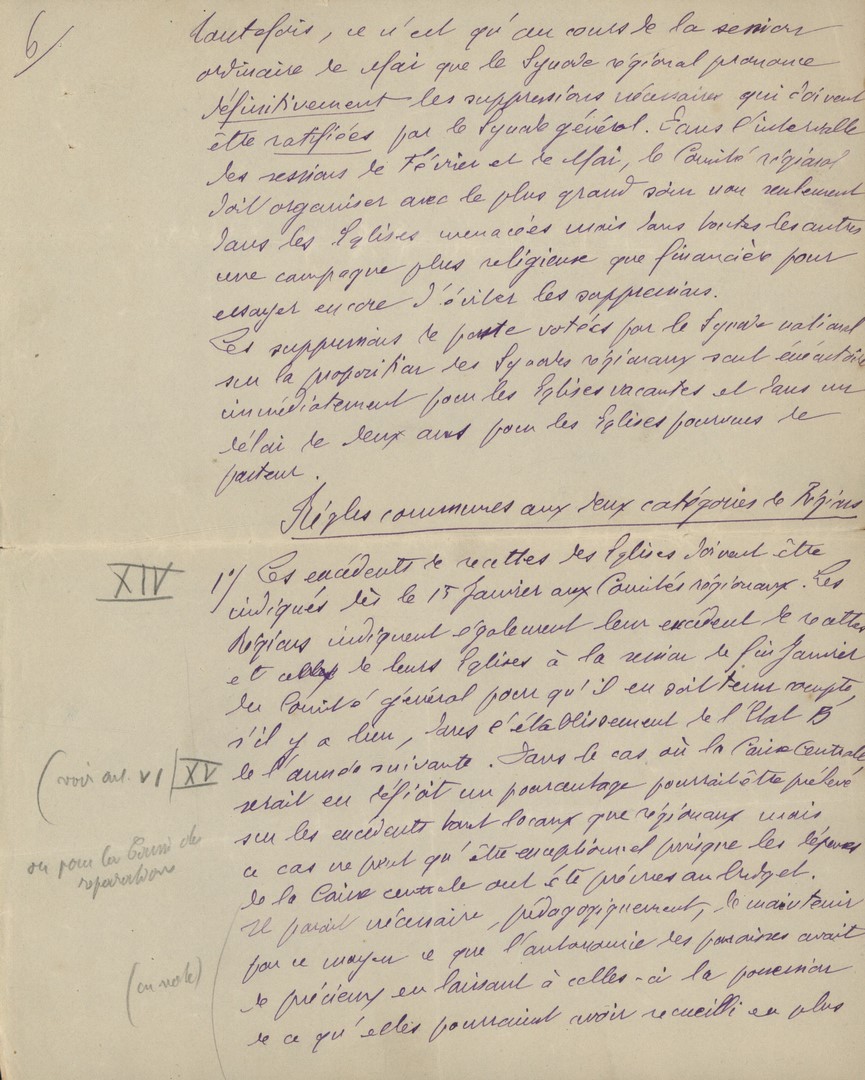 6/
Toutefois, ce n'est qu'au cours de la session
ordinaire de Mai que le Synode régional prononce
définitivement les suppressions nécessaires qui doivent
être ratifiées par le Synode général. Dans l'intervalle
des sessions de Février et de Mai, le Comité régional
doit organiser avec le plus grand soin non seulement
dans les Eglises menacées mais dans toutes les autres
une campagne plus religieuse que financière pour
essayer encore d'éviter les suppressions.
Les suppressions de poste votées par le Synode national
sur la proposition des Synodes régionaux sont exécutoires
immédiatement pour les Eglises vacantes et dans un
délai de deux ans pour les Eglises pourvues de
pasteur.
Règles communes aux deux catégories de Régions
XIV
1°/ Les excédents de recettes des Eglises doivent être
indiqués dès le 1er Janvier aux Comités régionaux. Les
Régions indiquent également leur excédent de recettes
et celles de leurs Eglises à la session de fin Janvier
du Comité général pour qu'il en soit tenu compte,
s'il y a lieu, dans l'établissement de l'Etat B
de l'année suivante. Dans le cas où la Caisse Centrale
(voir art. VI / XV
serait en déficit un pourcentage pourrait être prélevé
sur les excédents tant locaux que régionaux mais
ou pour la de
réparations
ce cas ne peut qu'être exceptionnel puisque les dépenses
de la Caisse centrale ont été prévues au budget.
Il parait nécessaire, pédagogiquement, de maintenir
par ce moyen ce que l'autonomie des paroisses avait
(en note)
de précieux en laissant à celles-ci la possession
de ce qu'elles pourraient avoir recueilli en plus